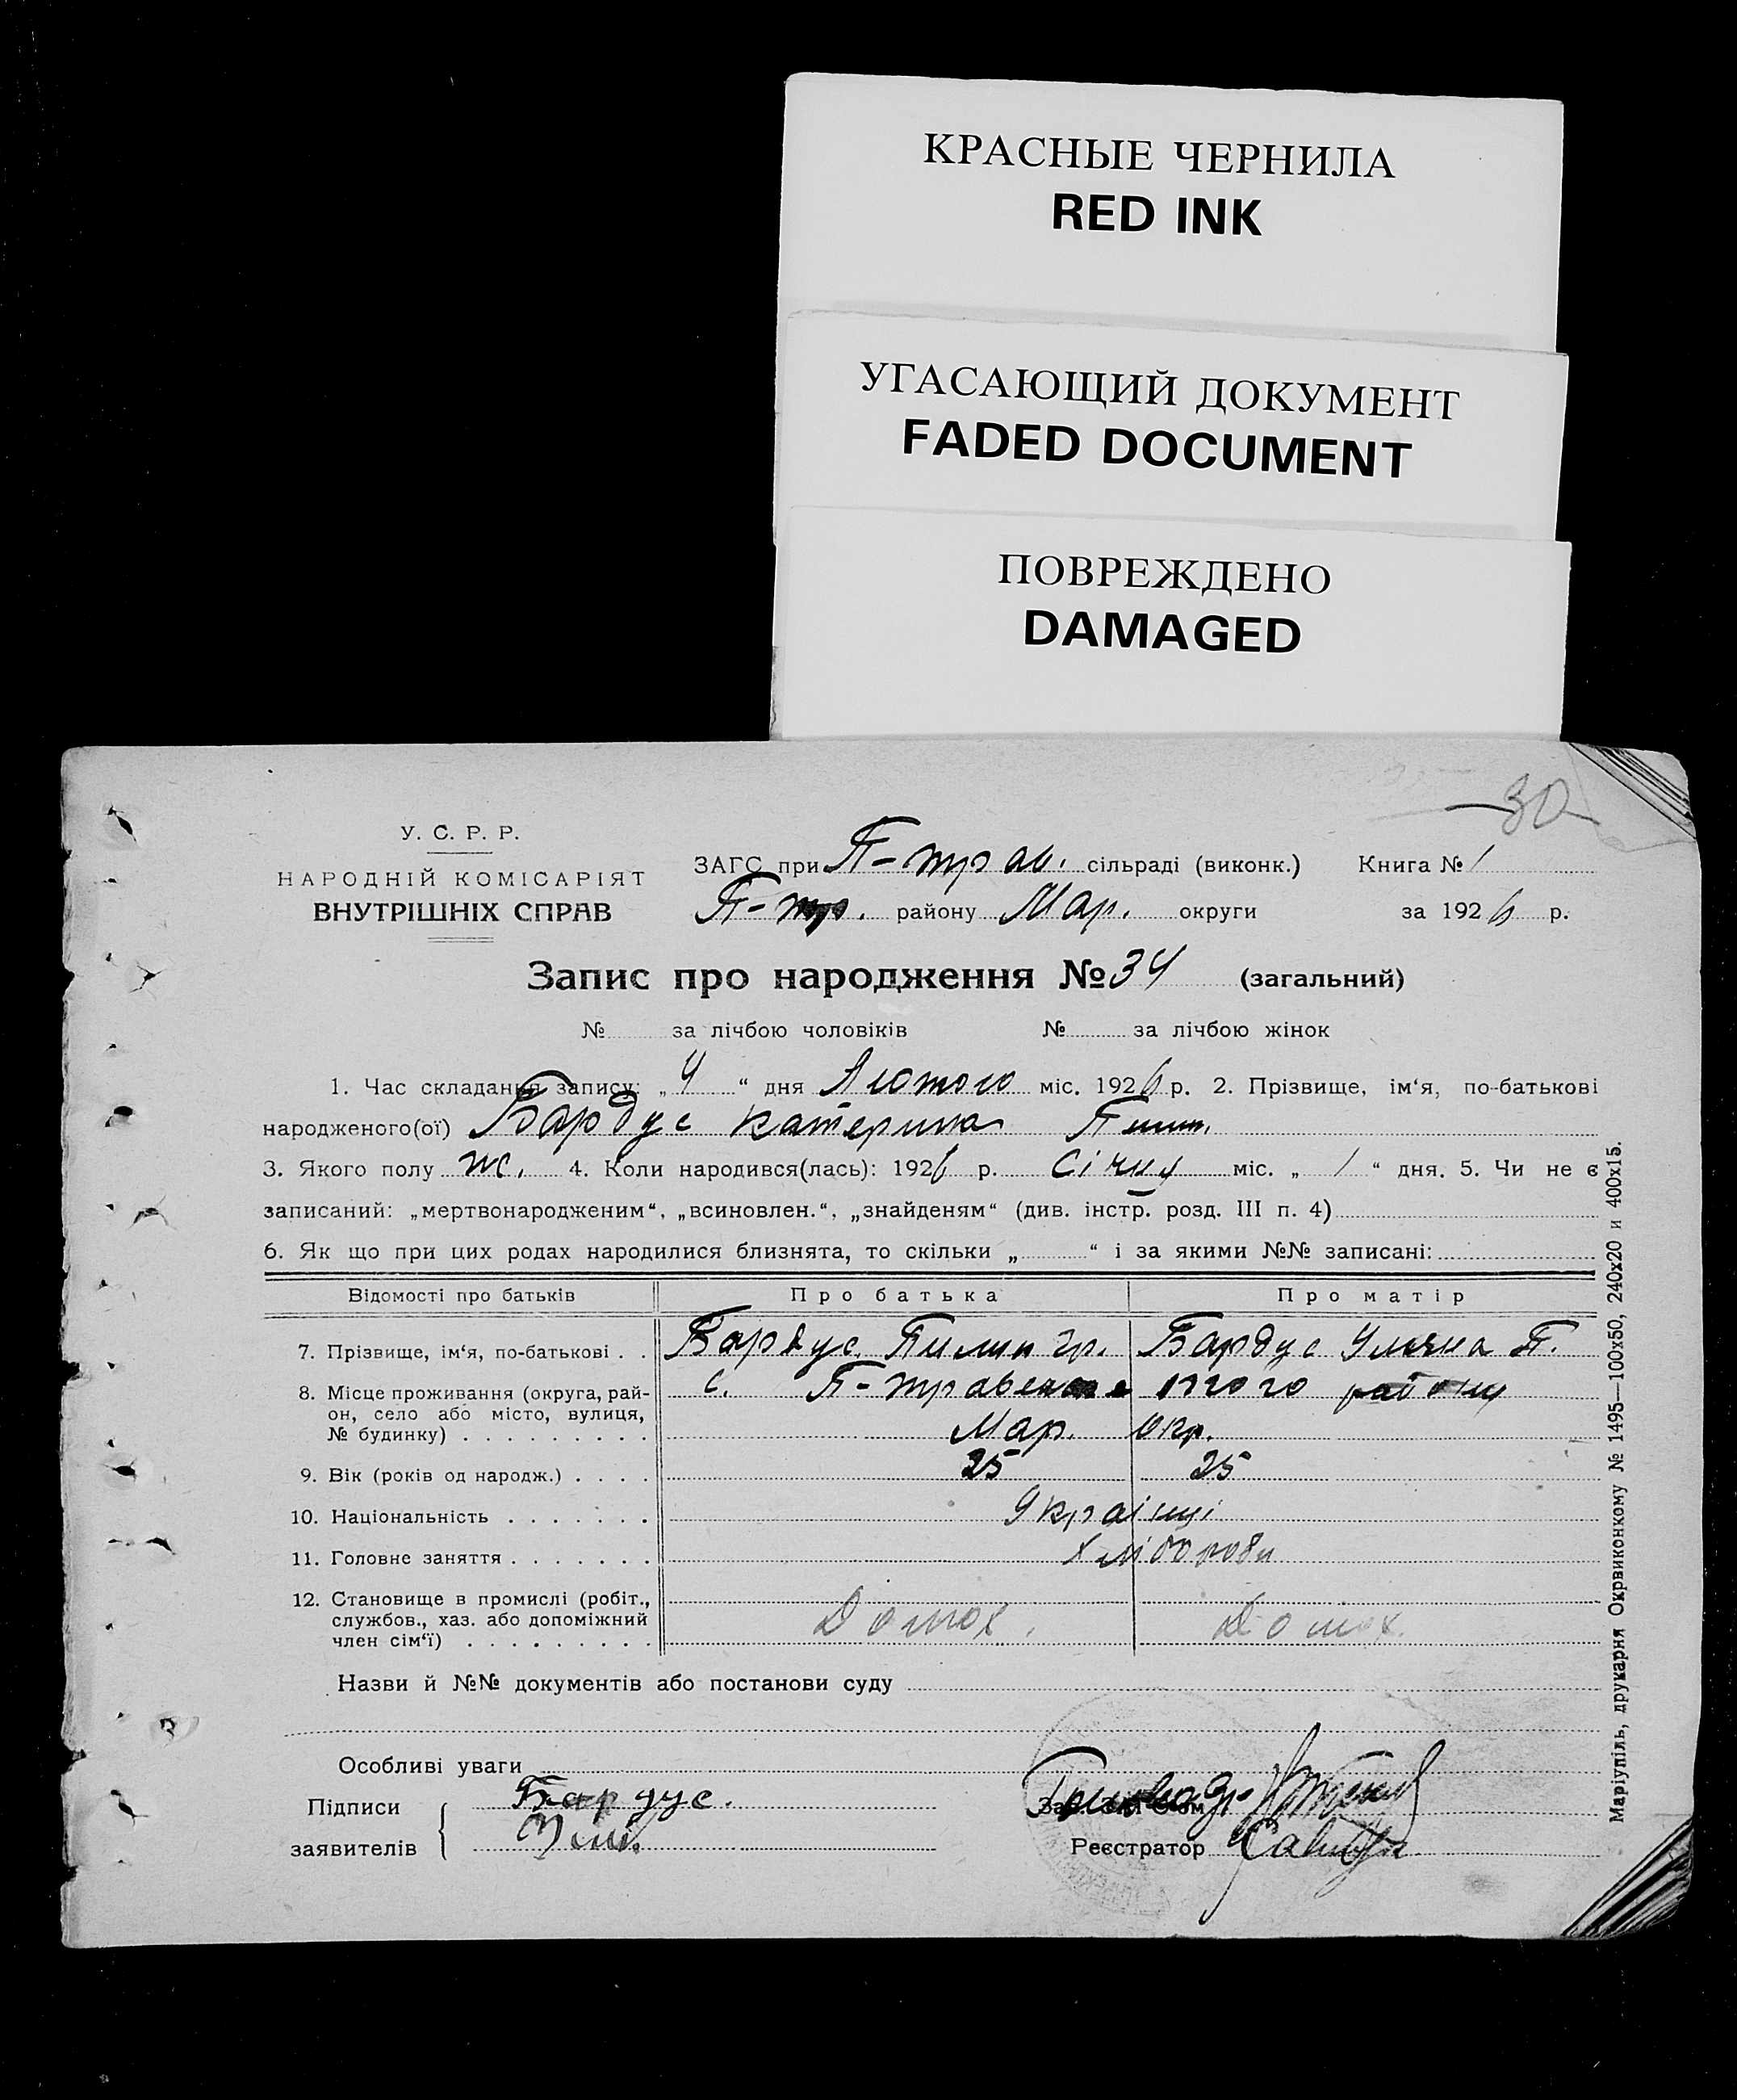 КРАСНЫЕ ЧЕРНИЛА
RED INK
УГАСАЮЩИЙ ДОКУМЕНТ
FADED DOCUMENT
ПОВРЕЖДЕНО
DAMAGED
30
У. С. Р. Р.
НАРОДНІЙ КОМІСАРІЯТ
ВНУТРІШНІХ СПРАВ
ЗАГС при П-трав. сільраді (виконк.) Книга № 1
П-тр. району Мар. округи за 1926 р.
Запис про народження № 34 (загальний)
№ за лічбою чоловіків № за лічбою жінок
1. Час складання запису: „4“ дня Лютого міс. 1926 р. 2. Прізвище, ім‘я, по-батькові
народженого(ої) Бардус Катерина Пим.
3. Якого полу ж. 4. Коли народився(лась): 1926 р. Січня міс. „1“ дня. 5. Чи не є
записаний: „мертвонародженим“, „всиновлен.“, „знайденям“ (див. інстр. розд. III п. 4)
6. Як що при цих родах народилися близнята, то скільки „ “ і за якими №№ записані:
Відомості про батьків Про батька Про матір
7. Прізвище, ім‘я, по-батькові . . Бардус Пимин гр. Бардус Уляна П.
8. Місце проживання (округа, рай- с. П-травенка того району
он, село або місто, вулиця,
№ будинку) . . . . . . . . . Мар. окр.
9. Вік (років од народж.) . . . . 25 25
10. Національність . . . . . . . Українці
11. Головне заняття . . . . . . . Хлібороби
12. Становище в промислі (робіт.,
службов., хаз. або допоміжний
член сім‘ї) . . . . . . . . . Домох. Домох.
Назви й №№ документів або постанови суду
Особливі уваги
Підписи Бардус.
заявителів
Реєстратор
Маріупіль, друкарня Окрвиконкому № 1495—100х50, 240х20 и 400х15.